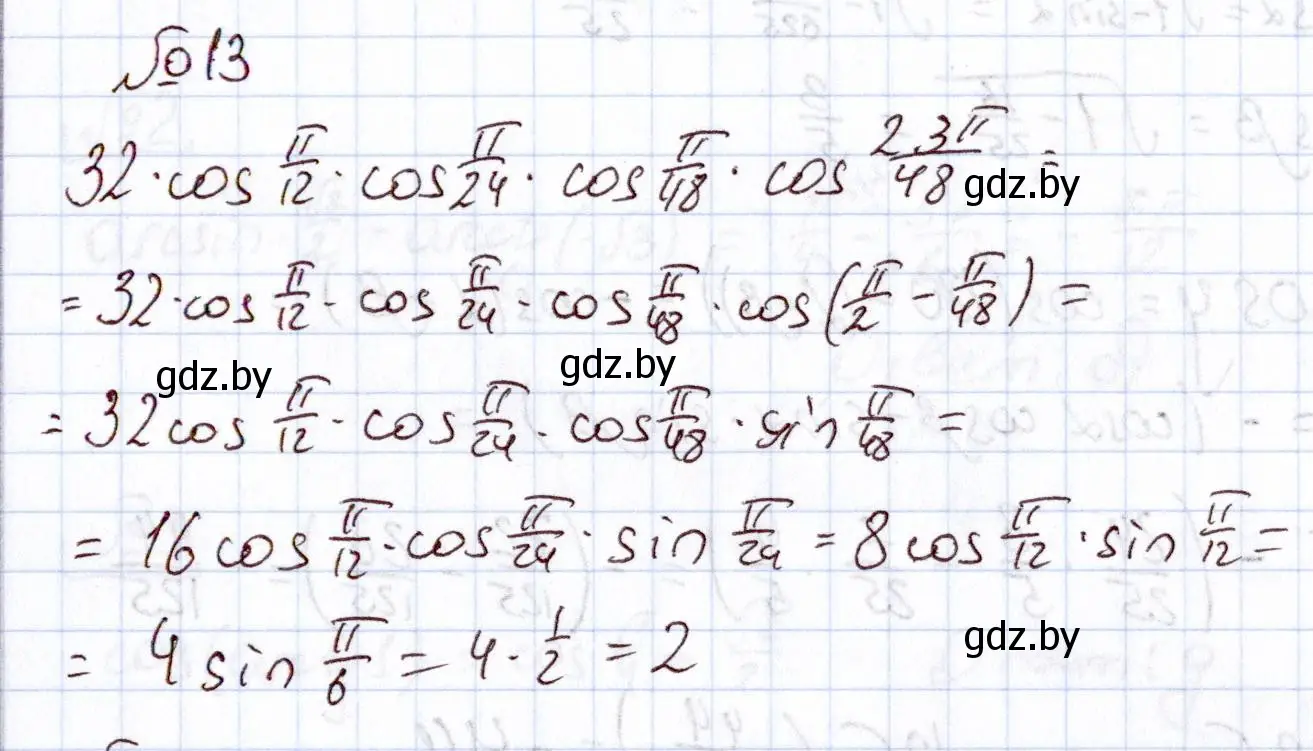 №13
32·cos π/12 · cos π/24 · cos π/48 · cos 23π/48 =
gdz.by
= 32·cos π/12 · cos π/24 · cos π/48 · cos(π/2 − π/48) =
gdz.by gdz.by
= 32cos π/12 · cos π/24 · cos π/48 · sin π/48 =
= 16cos π/12 · cos π/24 · sin π/24 = 8cos π/12 · sin π/12 =
= 4sin π/6 = 4 · 1/2 = 2
gdz.by